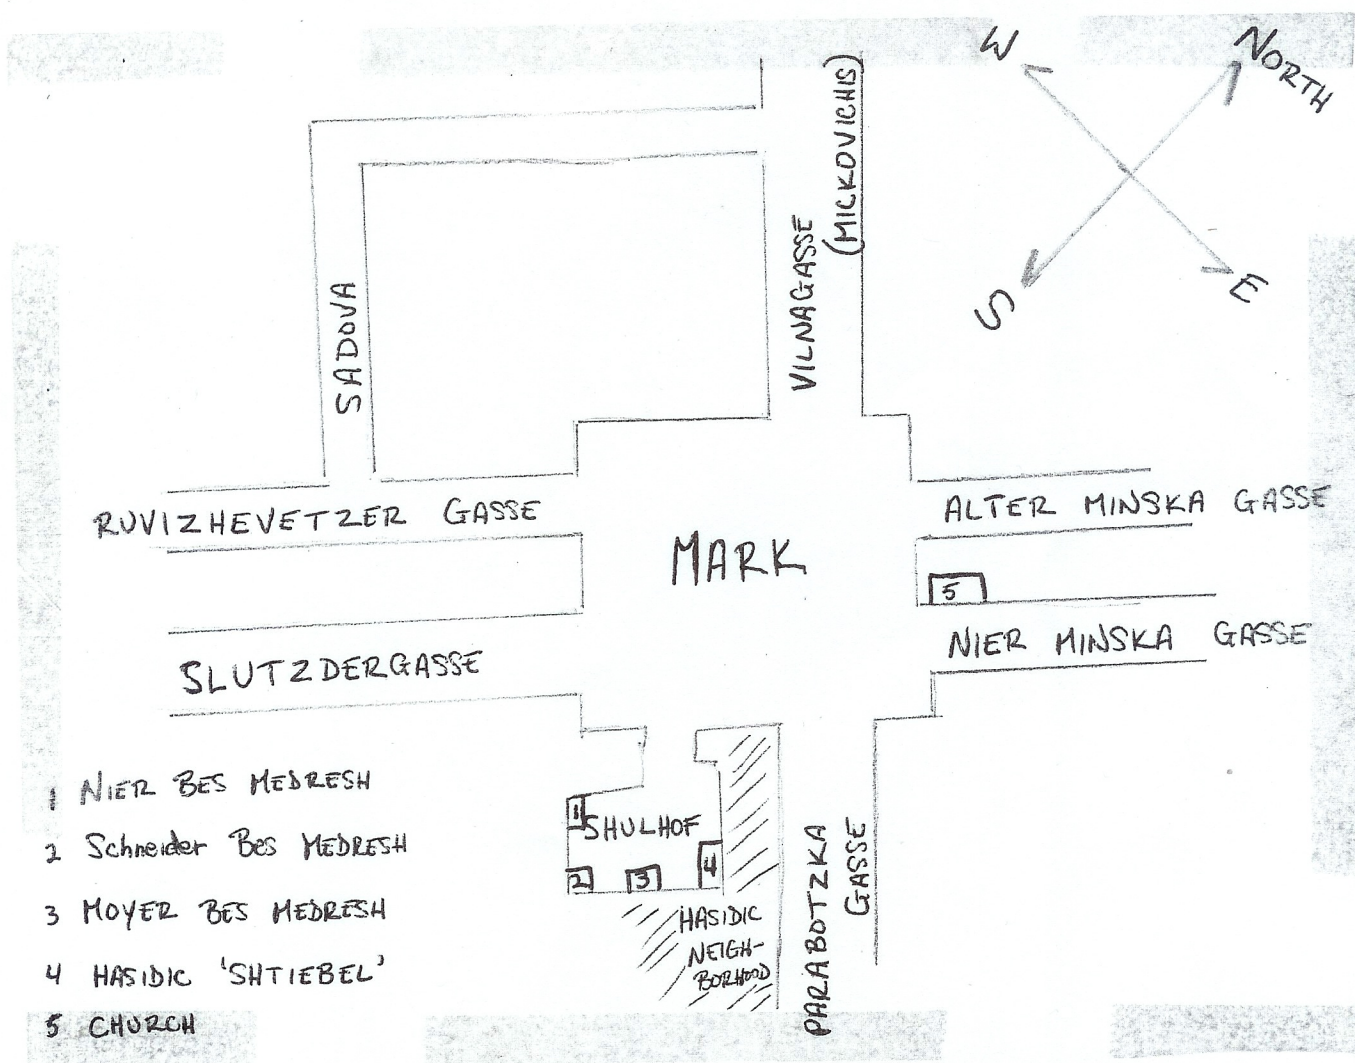 W
NORTH
S
E
VILNAGASSE
(MICKOVICHIS)
SADOVA
RUVIZHEVETZER GASSE
ALTER MINSKA GASSE
MARK
5
SLUTZDERGASSE
NIER MINSKA GASSE
1
SHULHOF
2
3
4
HASIDIC
NEIGH-
BORHOOD
PARABOTZKA
GASSE
1 NIER BES MEDRESH
2 Schneider BES MEDRESH
3 MOYER BES MEDRESH
4 HASIDIC 'SHTIEBEL'
5 CHURCH